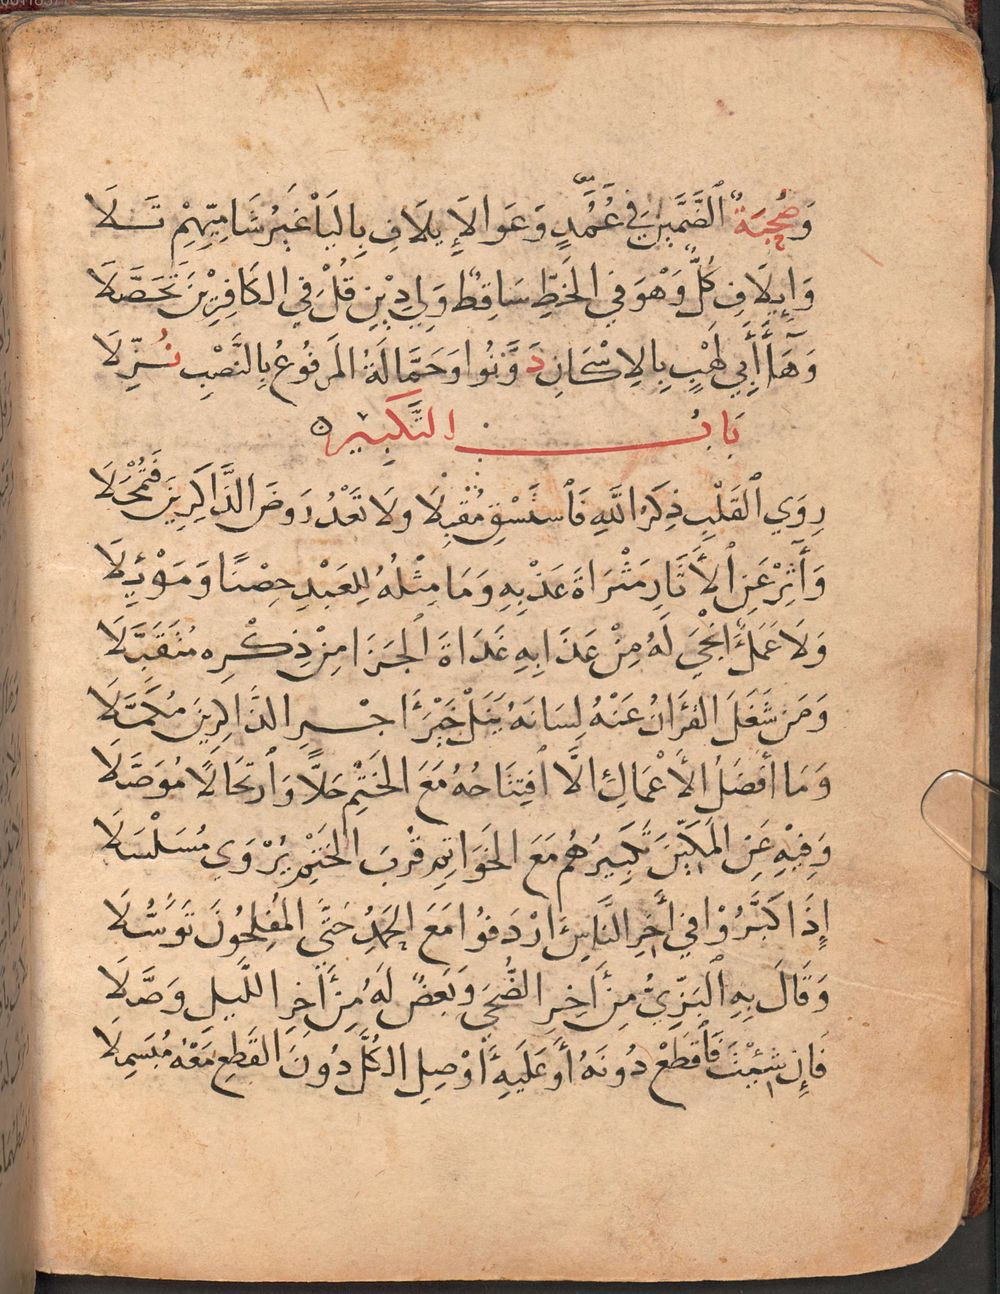 وَصُحْبَةٌ الضَّمَّيْنِ فِي عُمُدٍ وَعَوا لِإِيلَافِ بِاليَا غَيْرُ شَامِيِّهِمْ تَلَا
وَإِيلَافِ كُلٌّ وَهْوَ فِي الخَطِّ سَاقِطٌ وَلِي دِيْنِ قُلْ فِي الكَافِرِيْنَ تَحَصَّلَا
وَهَاأَ أَبِي لَهْبٍ بِالاِسْكَانِ دَوَّنُوا وَحَمَّالَةُ المَرفُوعُ بِالنَّصْبِ نُزِّلَا
بَابُ التَّكبِيرِ
رِوَي القَلْبِ ذِكرُ اللَّهِ فَاسْتَسْقِ مُقْبِلَا وَلَا تَعْدُ رَوضَ الذَّاكِرِينَ فَتُمْحِلَا
وَآثِرْ عَنِ الْأَثَارِ مَثْرَاةَ عَذْبِهِ وَمَا مِثْلُهُ لِلعَبْدِ حِصْنًا وَمَوْئِلَا
وَلَا عَمَلٌ أَنْجَى لَهُ مِنْ عَذَابِهِ غَدَاةَ الجَزَا مِنْ ذِكْرِه مُتَقَبَّلَا
وَمَن شَغَلَ القُرَانُ عَنْهُ لِسَانَهُ يَنَلْ خَيْرَ أَجْرِ الذَّاكِرِينَ مُكَمَّلَا
وَمَا أَفضَلُ الأَعْمَالِ الَّا افتِتَاحُهُ مَعَ الخَتْمِ حَلًّا وَارتِحَالًا مُوَصَّلَا
وَفِيْهِ عَنِ المَكِّيْنَ تَكْبِيرُهُم مَعَ الخَوَاتِمِ قُربَ الخَتْمِ يُرْوَى مُسَلْسَلَا
إِذَا كَبَّرُوْا فِي أَخِرِ النَّاسِ أَرْدَفُوا مَعَ الحَمْدُ حَتَّى المُفلِحُونَ تَوَسُّلَا
وَقَالَ بِهِ البَزِّيُّ مِنْ أَخِرِ الضُّحَى وَبَعضٌ لَهُ مِنْ أَخِرِ اللَّيلِ وَصَّلَا
فَإِن شِئْتَ فَاقطَعْ دُونَهُ أَو عَلَيهِ أَوْ صِلِ الكُلَّ دُونَ القَطعِ مَعْهُ مُبَسمِلَا